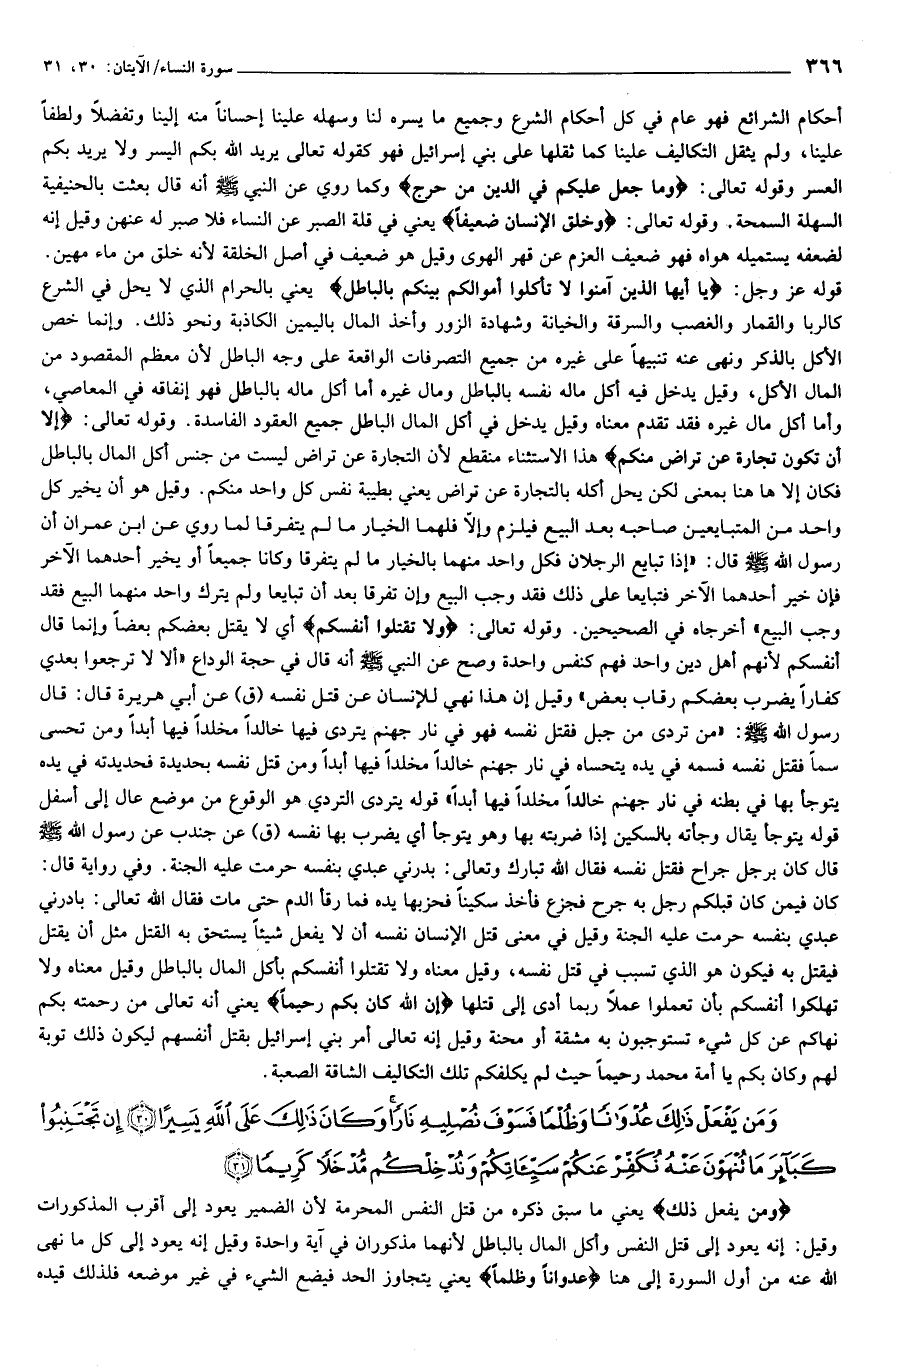 ٣٦٦ سورة النساء/ الآيتان: ٣٠، ٣١
أحكام الشرائع فهو عام في كل أحكام الشرع وجميع ما يسره لنا وسهله علينا إحساناً منه إلينا وتفضلاً ولطفاً
علينا، ولم يثقل التكاليف علينا كما ثقلها على بني إسرائيل فهو كقوله تعالى يريد الله بكم اليسر ولا يريد بكم
العسر وقوله تعالى: ﴿وما جعل عليكم في الدين من حرج﴾ وكما روي عن النبي ﷺ أنه قال بعثت بالحنيفية
السهلة السمحة. وقوله تعالى: ﴿وخلق الإنسان ضعيفاً﴾ يعني في قلة الصبر عن النساء فلا صبر له عنهن وقيل إنه
لضعفه يستميله هواه فهو ضعيف العزم عن قهر الهوى وقيل هو ضعيف في أصل الخلقة لأنه خلق من ماء مهين.
قوله عز وجل: ﴿يا أيها الذين آمنوا لا تأكلوا أموالكم بينكم بالباطل﴾ يعني بالحرام الذي لا يحل في الشرع
كالربا والقمار والغصب والسرقة والخيانة وشهادة الزور وأخذ المال باليمين الكاذبة ونحو ذلك. وإنما خص
الأكل بالذكر ونهى عنه تنبيهاً على غيره من جميع التصرفات الواقعة على وجه الباطل لأن معظم المقصود من
المال الأكل، وقيل يدخل فيه أكل ماله نفسه بالباطل ومال غيره أما أكل ماله بالباطل فهو إنفاقه في المعاصي،
وأما أكل مال غيره فقد تقدم معناه وقيل يدخل في أكل المال الباطل جميع العقود الفاسدة. وقوله تعالى: ﴿إلا
أن تكون تجارة عن تراض منكم﴾ هذا الاستثناء منقطع لأن التجارة عن تراض ليست من جنس أكل المال بالباطل
فكان إلا ها هنا بمعنى لكن يحل أكله بالتجارة عن تراض يعني بطيبة نفس كل واحد منكم. وقيل هو أن يخير كل
واحد من المتبايعين صاحبه بعد البيع فيلزم وإلّا فلهما الخيار ما لم يتفرقا لما روي عن ابن عمران أن
رسول الله ﷺ قال: «إذا تبايع الرجلان فكل واحد منهما بالخيار ما لم يتفرقا وكانا جميعاً أو يخير أحدهما الآخر
فإن خير أحدهما الآخر فتبايعا على ذلك فقد وجب البيع وإن تفرقا بعد أن تبايعا ولم يترك واحد منهما البيع فقد
وجب البيع» أخرجاه في الصحيحين. وقوله تعالى: ﴿ولا تقتلوا أنفسكم﴾ أي لا يقتل بعضكم بعضاً وإنما قال
أنفسكم لأنهم أهل دين واحد فهم كنفس واحدة وصح عن النبي ﷺ أنه قال في حجة الوداع «ألا لا ترجعوا بعدي
كفاراً يضرب بعضكم رقاب بعض» وقيل إن هذا نهي للإنسان عن قتل نفسه (ق) عن أبي هريرة قال: قال
رسول الله ﷺ: «من تردى من جبل فقتل نفسه فهو في نار جهنم يتردى فيها خالداً مخلداً فيها أبداً ومن تحسى
سماً فقتل نفسه فسمه في يده يتحساه في نار جهنم خالداً مخلداً فيها أبداً ومن قتل نفسه بحديدة فحديدته في يده
يتوجأ بها في بطنه في نار جهنم خالداً مخلداً فيها أبداً» قوله يتردى التردي هو الوقوع من موضع عال إلى أسفل
قوله يتوجأ يقال وجأته بالسكين إذا ضربته بها وهو يتوجأ أي يضرب بها نفسه (ق) عن جندب عن رسول الله ﷺ
قال كان برجل جراح فقتل نفسه فقال الله تبارك وتعالى: بدرني عبدي بنفسه حرمت عليه الجنة. وفي رواية قال:
كان فيمن كان قبلكم رجل به جرح فجزع فأخذ سكيناً فحزبها يده فما رقأ الدم حتى مات فقال الله تعالى: بادرني
عبدي بنفسه حرمت عليه الجنة وقيل في معنى قتل الإنسان نفسه أن لا يفعل شيئاً يستحق به القتل مثل أن يقتل
فيقتل به فيكون هو الذي تسبب في قتل نفسه، وقيل معناه ولا تقتلوا أنفسكم بأكل المال بالباطل وقيل معناه ولا
تهلكوا أنفسكم بأن تعملوا عملاً ربما أدى إلى قتلها ﴿إن الله كان بكم رحيماً﴾ يعني أنه تعالى من رحمته بكم
نهاكم عن كل شيء تستوجبون به مشقة أو محنة وقيل إنه تعالى أمر بني إسرائيل بقتل أنفسهم ليكون ذلك توبة
لهم وكان بكم يا أمة محمد رحيماً حيث لم يكلفكم تلك التكاليف الشاقة الصعبة.
وَمَن يَفْعَلْ ذَٰلِكَ عُدْوَٰنًا وَظُلْمًا فَسَوْفَ نُصْلِيهِ نَارًا ۚ وَكَانَ ذَٰلِكَ عَلَى ٱللَّهِ يَسِيرًا ﴿٣٠﴾ إِن تَجْتَنِبُوا۟
كَبَآئِرَ مَا تُنْهَوْنَ عَنْهُ نُكَفِّرْ عَنكُمْ سَيِّـَٔاتِكُمْ وَنُدْخِلْكُم مُّدْخَلًا كَرِيمًا ﴿٣١﴾
﴿ومن يفعل ذلك﴾ يعني ما سبق ذكره من قتل النفس المحرمة لأن الضمير يعود إلى أقرب المذكورات
وقيل: إنه يعود إلى قتل النفس وأكل المال بالباطل لأنهما مذكوران في آية واحدة وقيل إنه يعود إلى كل ما نهى
الله عنه من أول السورة إلى هنا ﴿عدواناً وظلماً﴾ يعني يتجاوز الحد فيضع الشيء في غير موضعه فلذلك قيده